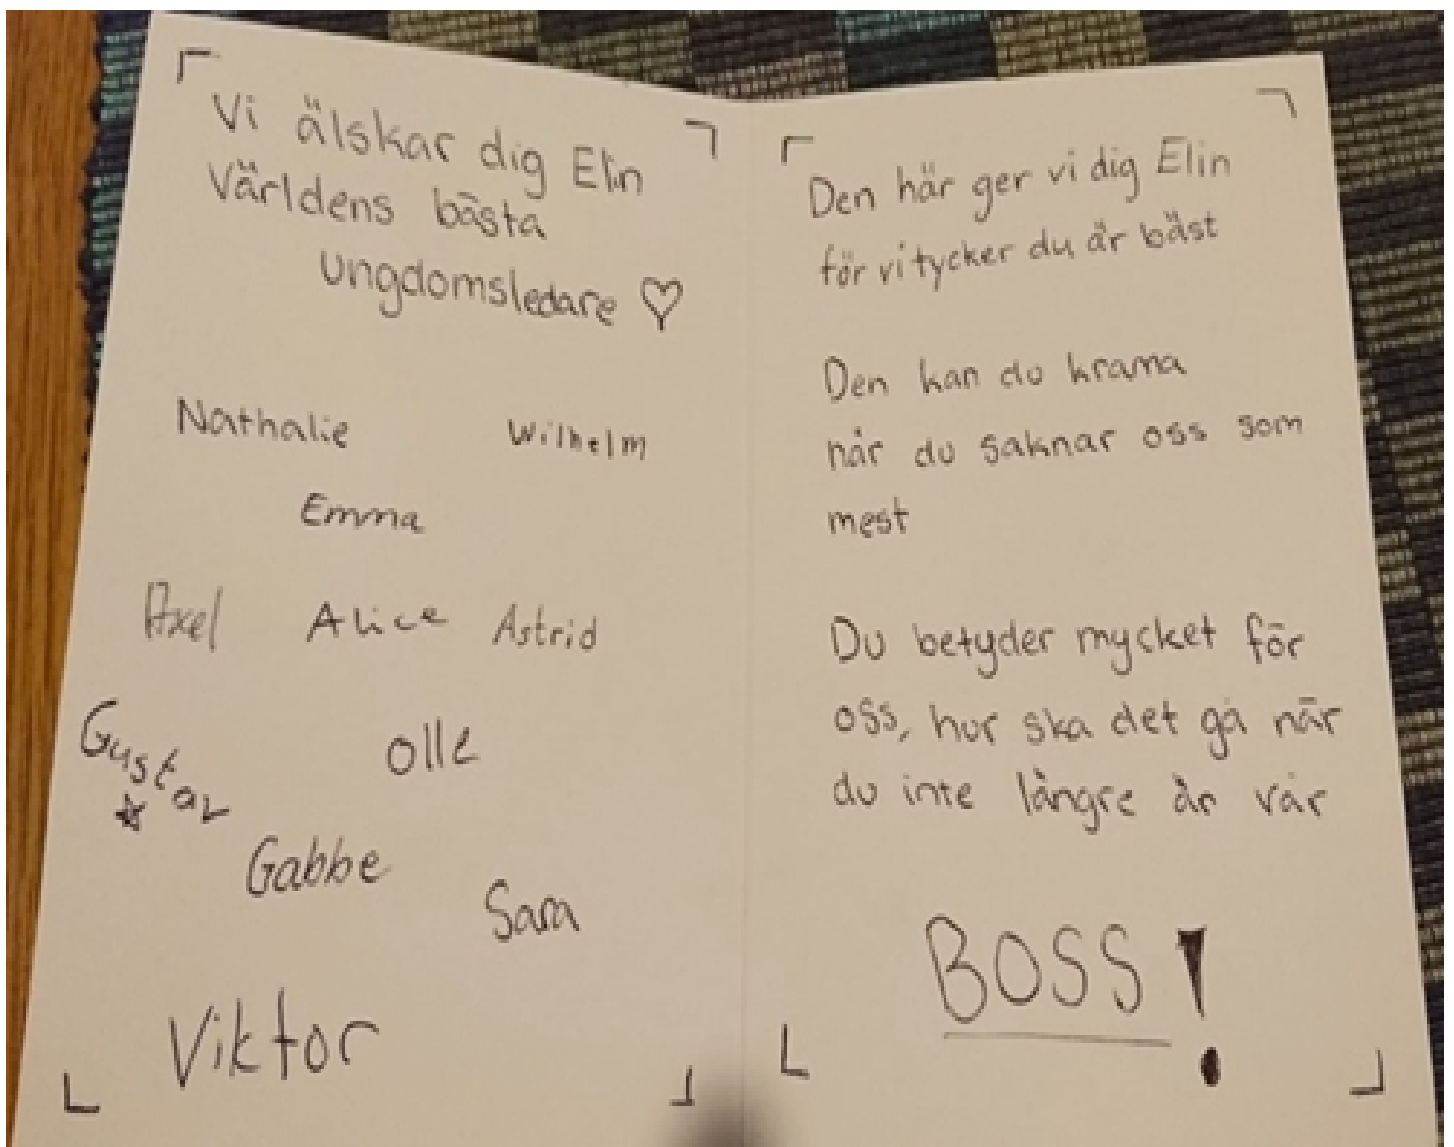 Vi älskar dig Elin
Världens bästa
ungdomsledare ♡
Nathalie Wilhelm
Emma
Axel Alice Astrid
Gustav
Olle
Gabbe
Sara
Viktor
Den här ger vi dig Elin
för vi tycker du är bäst
Den kan du krama
når du saknar oss som
mest
Du betyder mycket för
oss, hur ska det gå när
du inte längre är vår
BOSS!